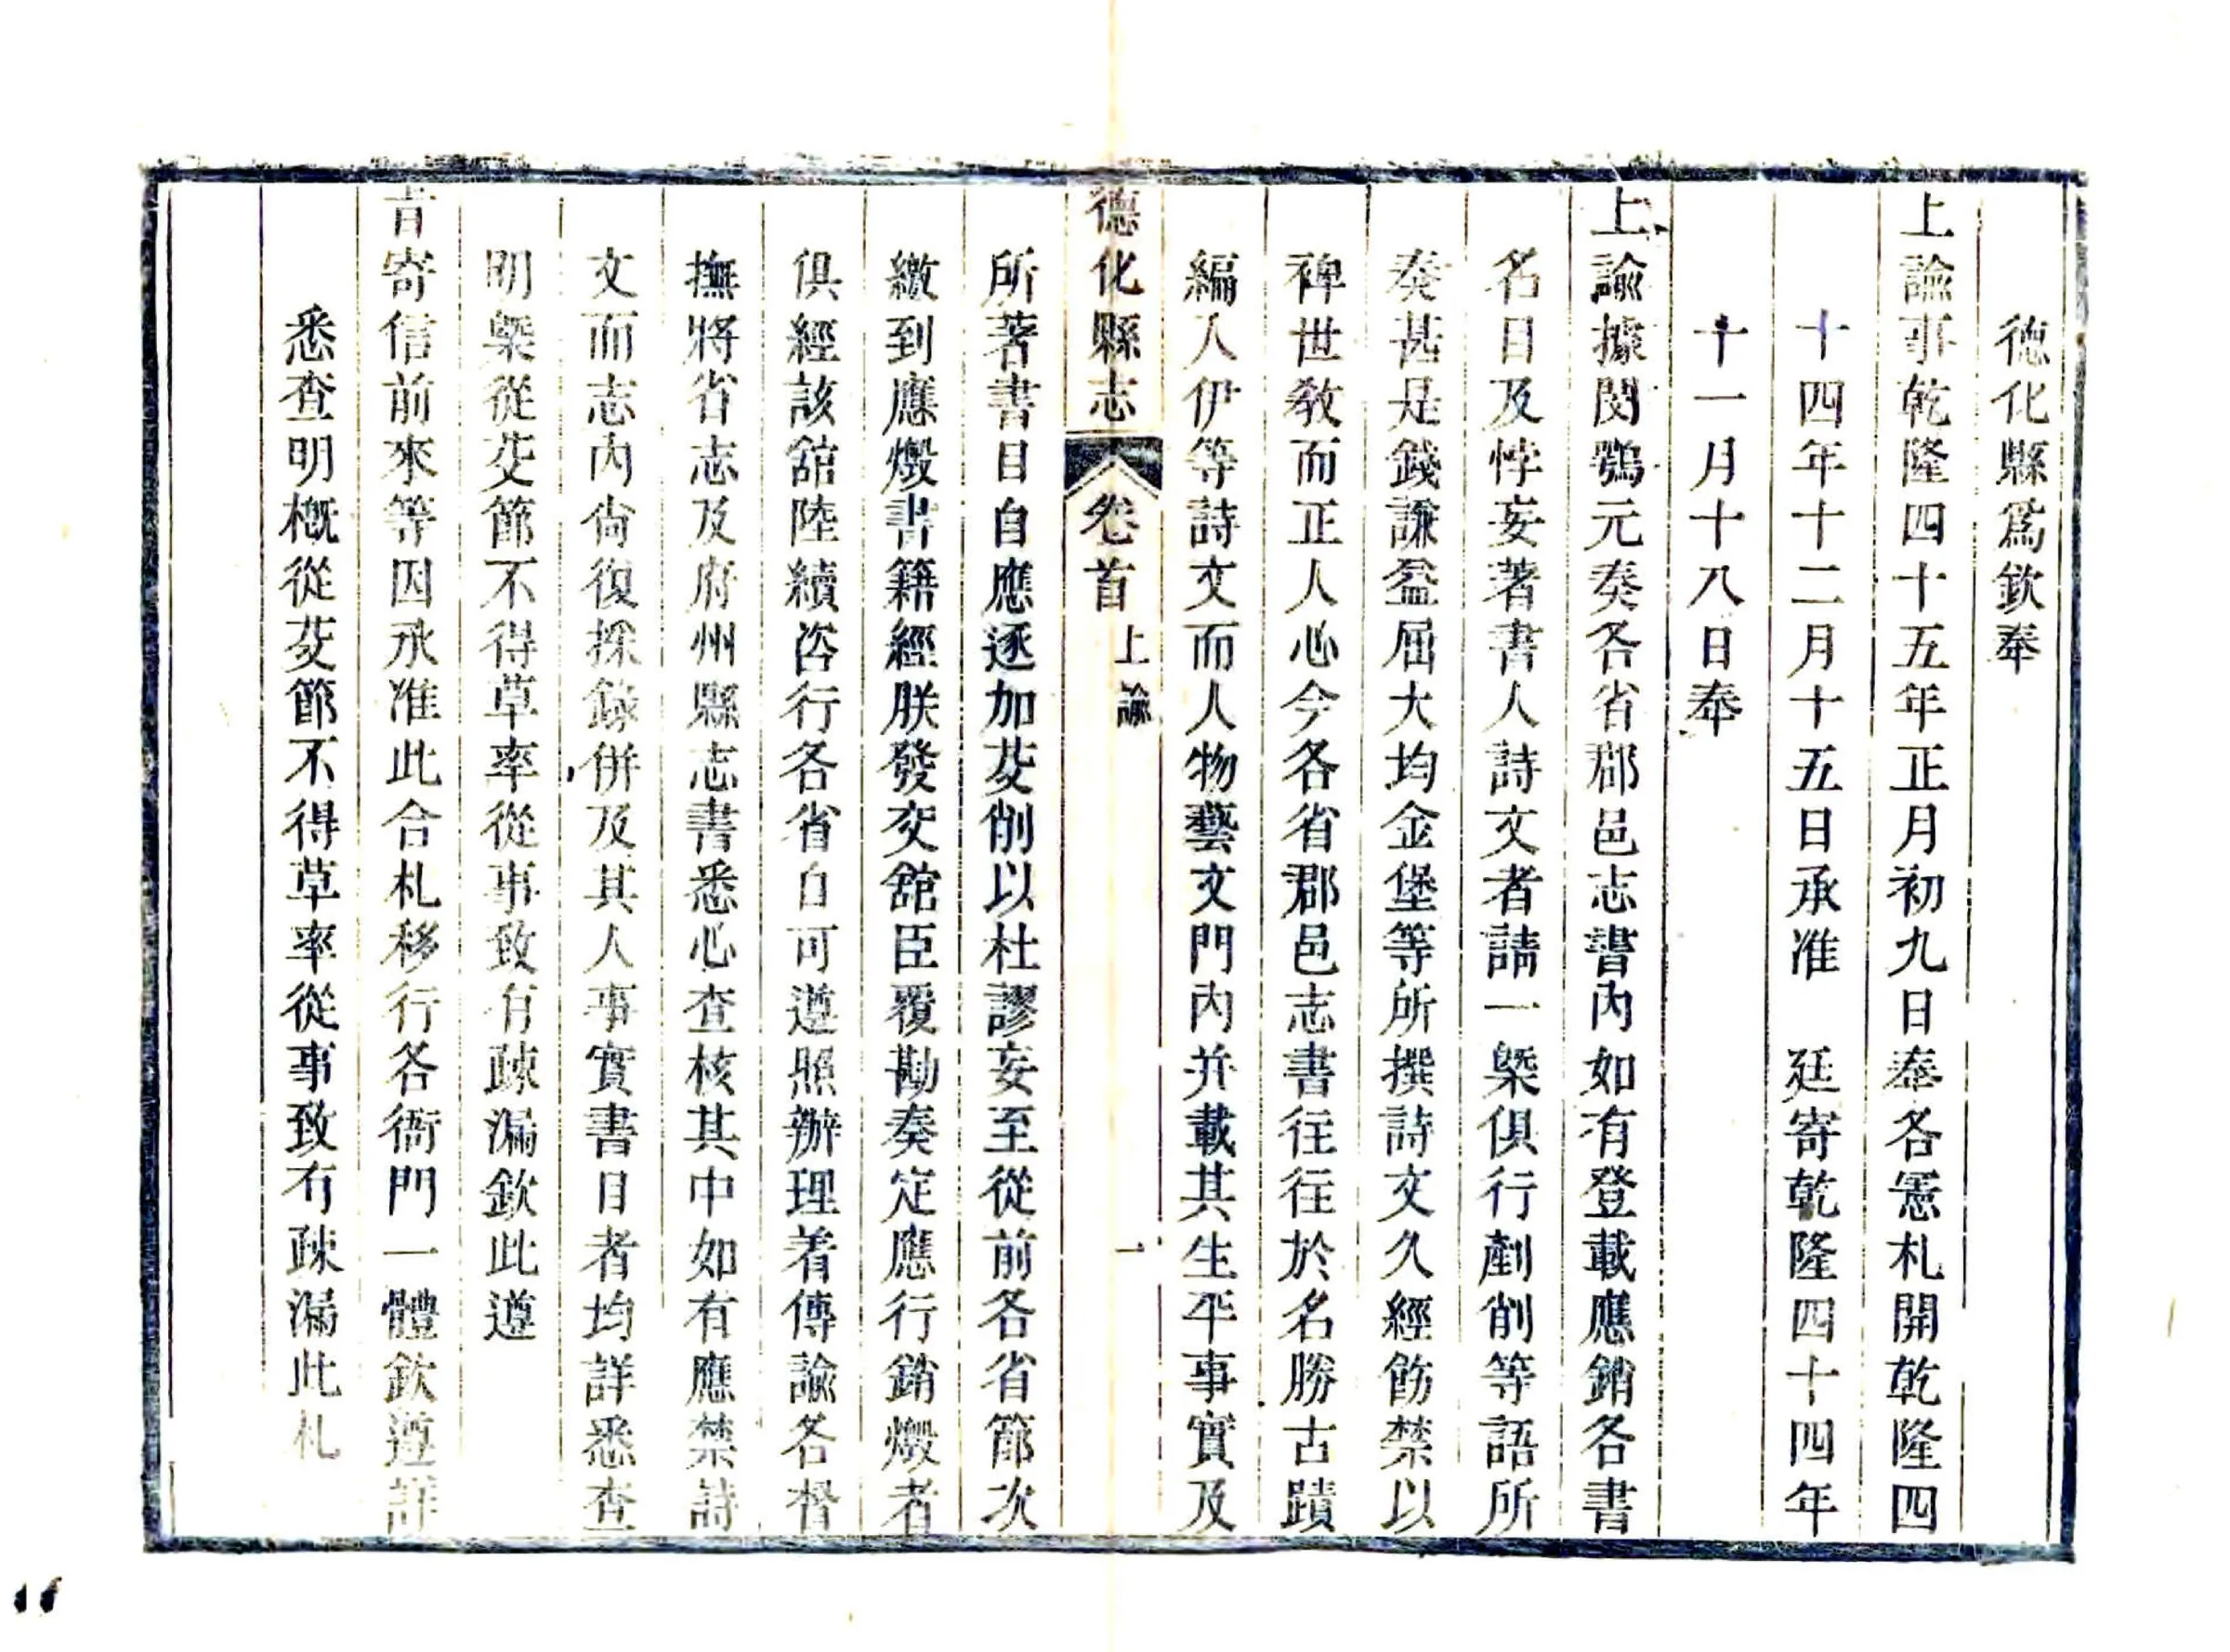 德化縣爲欽奉
上諭事乾隆四十五年正月初九日奉各憲札開乾隆四
十四年十二月十五日承准　廷寄乾隆四十四年
十一月十八日奉
上諭據閔鶚元奏各省郡邑志書內如有登載應銷各書
名目及悖妄著書人詩文者請一槩俱行剷削等語所
奏甚是錢謙益屈大均金堡等所撰詩文久經飭禁以
裨世敎而正人心今各省郡邑志書往往於名勝古蹟
編入伊等詩文而人物藝文門內并載其生平事實及
德化縣志　卷首　上諭　一
所著書目自應逐加芟削以杜謬妄至從前各省節次
繳到應燬書籍經朕發交舘臣覆勘奏定應行銷燬者
俱經該舘陸續咨行各省自可遵照辦理着傳諭各督
撫將省志及府州縣志書悉心查核其中如有應禁詩
文而志內尙復採錄併及其人事實書目者均詳悉查
明槩從芟節不得草率從事致有疎漏欽此遵
旨寄信前來等因承准此合札移行各衙門一體欽遵詳
悉查明槪從芟節不得草率從事致有疎漏此札